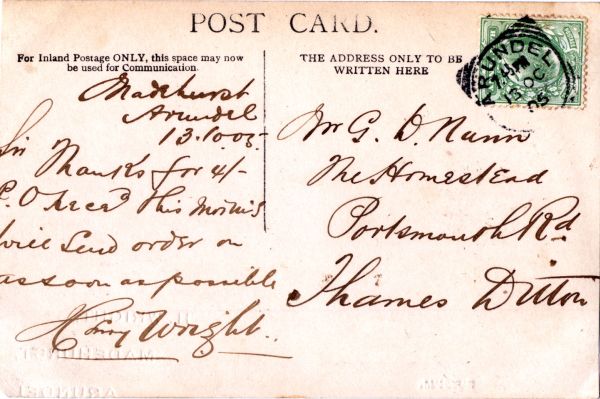 POST CARD.
For Inland Postage ONLY, this space may now
be used for Communication.
THE ADDRESS ONLY TO BE
WRITTEN HERE
ARUNDEL
OC
05
Madehurst
Arundel
13.10.05
Sir
Thanks for 4/-
P.O. reced this morning
will send order on
as soon as possible
Henry Wright.
Mr G. D. Nunn
The Homestead
Portsmouth Rd
Thames Ditton
H. WRIGHT
MADEHURST,
ARUNDEL